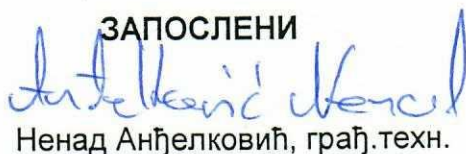 ЗАПОСЛЕНИ
Anđelković Nenad
Ненад Анђелковић, грађ.техн.